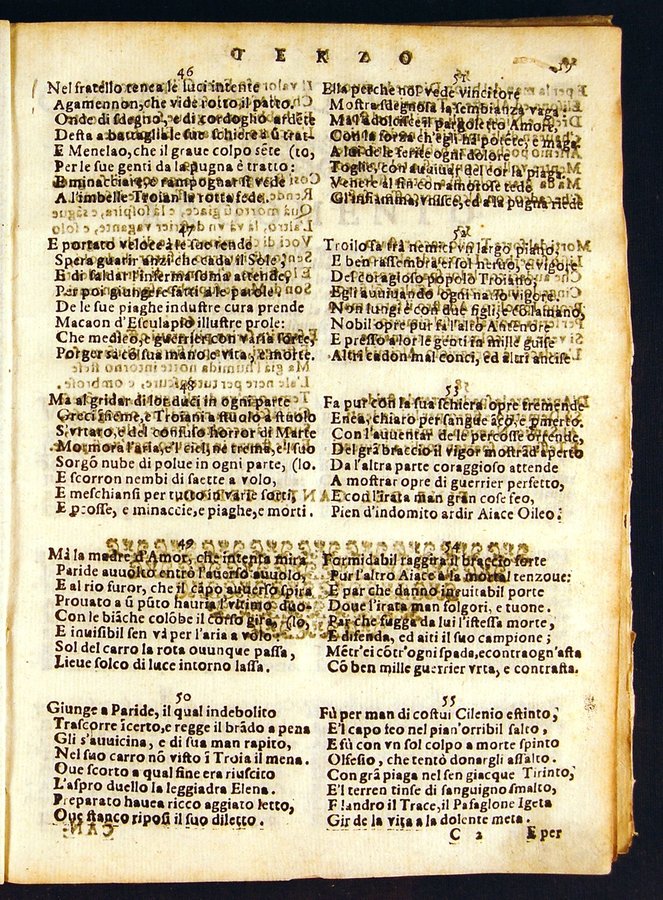 TERZO
19
46
Nel fratello tenea le luci intente
Agamennon, che vide rotto il patto.
Onde di sdegno, e di cordoglio ardẽte
Desta a battaglia le sue schiere ũ trat-
E Menelao, che il graue colpo sẽte (to,
Per le sue genti da la pugna è tratto:
E minacciar, e rampognar si vede
A l'imbelle Troian la rotta fede.
47
E portato veloce a le sue tende
Spera guarir anzi che cada il Sole,
E di saldar l'inferma soma attende,
Per poi giungere fatti a le parole.
De le sue piaghe industre cura prende
Macaon d'Esculapio illustre prole:
Che medico, e guerrier con varia sorte,
Porger sà cõ sua mano e vita, e morte.
48
Ma al gridar di lor duci in ogni parte
Greci ĩsieme, e Troiani a stuolo a stuolo
S'vrtaro, e del confuso horror di Marte
Mormora l'aria, e'l ciel, ne trema, e'l suo
Sorgõ nube di polue in ogni parte, (lo.
E scorron nembi di saette a volo,
E meschiansi per tutto in varie sorti,
E pcosse, e minaccie, e piaghe, e morti.
49
Mà la madre d'Amor, che intenta mira
Paride auuolto entro l'auerso auuolo,
E al rio furor, che il capo auuerso spira
Prouato a ũ pũto hauria l'vltimo duo-
Con le biãche colõbe il corso gira, (lo,
E inuisibil sen và per l'aria a volo:
Sol del carro la rota ouunque passa,
Lieue solco di luce intorno lassa.
50
Giunge a Paride, il qual indebolito
Trascorre ĩcerto, e regge il brãdo a pena
Gli s'auuicina, e di sua man rapito,
Nel suo carro nõ visto ĩ Troia il mena.
Oue scorto a qual fine era riuscito
L'aspro duello la leggiadra Elena.
Preparato hauea ricco aggiato letto,
Oue stanco riposi il suo diletto.
51
Ella perche nol vede vincitore
Mostra sdegnosa la sembianza vaga:
Ma sà dolcire il pargoletto Amore,
Con la forza ch'egli hà potẽte, e maga.
A lui de le ferite ogni dolore
Toglie, con auuiuar del cor la piaga.
Venere al fin con amorose tede
Gl'infiamma, vnisce, ed a la pugna riede
52
Troilo fà frà nemici vn largo piano,
E ben assembra ei sol neruo, e vigore
Del coragioso popolo Troiano;
Egli auuiuando ogni naso vigore.
Non lungi è con due figli, e collamano,
Nobil opre pur fà l'alto Antenore
E presso a lor le genti in mille guise
Altre cadon tra conci, ed altri ancise
53
Fa pur con la sua schiera opre tremende
Enea, chiaro per sangue aço, e p merto.
Con l'auuentar de le percosse orrende,
Del grã braccio il vigor mostra l'aperto
Da l'altra parte coraggioso attende
A mostrar opre di guerrier perfetto,
E con l'irata man gran cose feo,
Pien d'indomito ardir Aiace Oileo:
54
Formidabil raggira il braccio forte
Pur l'altro Aiace a la mortal tenzone:
E par che danno ineuitabil porte
Doue l'irata man folgori, e tuone.
Par che fugga da lui l'istessa morte,
E difenda, ed aiti il suo campione;
Mẽtr'ei cõtr'ogni spada, e contra ogn'asta
Cõ ben mille guerrier vrta, e contrasta.
55
Fù per man di costui Cilenio estinto,
E'l capo feo nel pian'orribil salto,
E fù con vn sol colpo a morte spinto
Olfesio, che tentò donargli assalto.
Con grã piaga nel sen giacque Tirinto,
E'l terren tinse di sanguigno smalto,
Flandro il Trace, il Pafaglone Igeta
Gir de la vita a la dolente meta.
C 2
E per